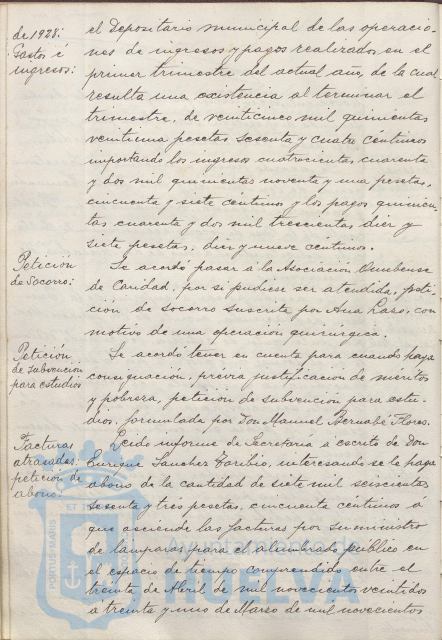 de 1928:
Gastos é
ingresos:
el Depositario municipal de las operacio-
nes de ingresos y pagos realizados en el
primer trimestre del actual año, de la cual
resulta una existencia al terminar el
trimestre, de veinticinco mil quinientas
veintiuna pesetas sesenta y cuatro céntimos
importando los ingresos cuatrocientas cuarenta
y dos mil quinientas noventa y una pesetas,
cincuenta y siete céntimos y los pagos
cuarenta y dos mil trescientas, diez y
siete pesetas, diez y nueve céntimos.
Petición
de Socorro:
Se acordó pasar á la Asociación Onubense
de Caridad, por si pudiese ser atendida, peti-
ción de socorro suscrita por Ana Laso, con
motivo de una operación quirúrgica.
Petición
de subvención
para estudios
Se acordó tener en cuenta para cuando haya
consignación, previa justificación de méritos
y pobreza, petición de subvención para estu-
dios, formulada por Don Manuel Bernabé Flores.
Facturas
atrasadas:
petición de
abono:
Leido informe de Secretaría a escrito de Don
Enrique Sanchez Toribio, interesando se le haga
abono de la cantidad de siete mil seiscientas
sesenta y tres pesetas, cincuenta céntimos á
que asciende las facturas por suministro
de lamparas para el alumbrado público en
el espacio de tiempo comprendido entre el
treinta de Abril de mil novecientos veintidos
á treinta y uno de Marzo de mil novecientos
PORTUS MARIS
ET TE
Ayuntamiento de
HUELVA